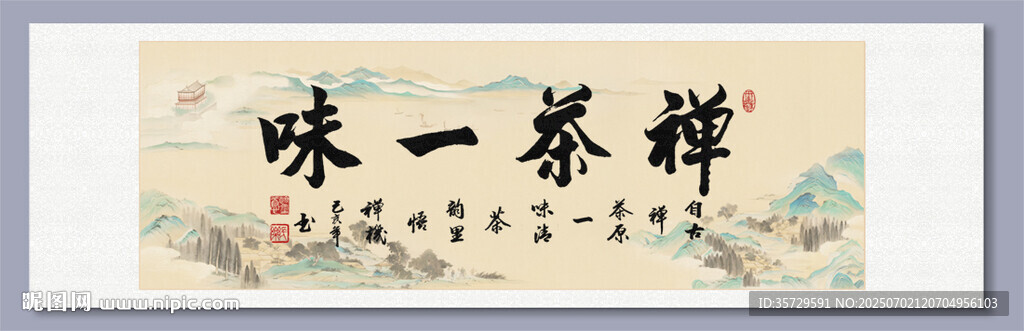 禅茶一味
自古
禅
茶原
一
味清
茶
韵里
悟
禅機
己亥年
书
昵图网 www.nipic.com
ID:35729591 NO:20250702120704956103